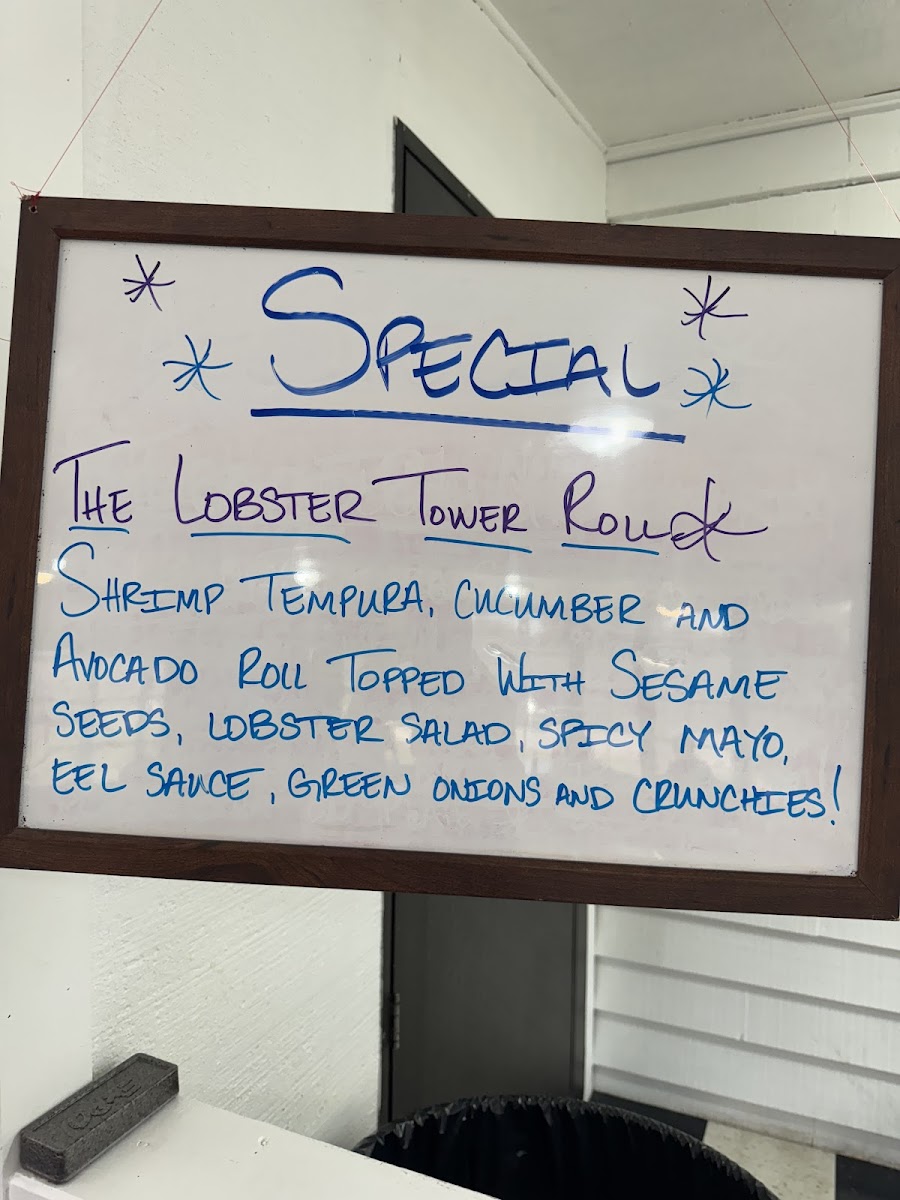 SPECIAL
THE LOBSTER TOWER ROLL
SHRIMP TEMPURA, CUCUMBER AND
AVOCADO ROLL TOPPED WITH SESAME
SEEDS, LOBSTER SALAD, SPICY MAYO,
EEL SAUCE, GREEN ONIONS AND CRUNCHIES!